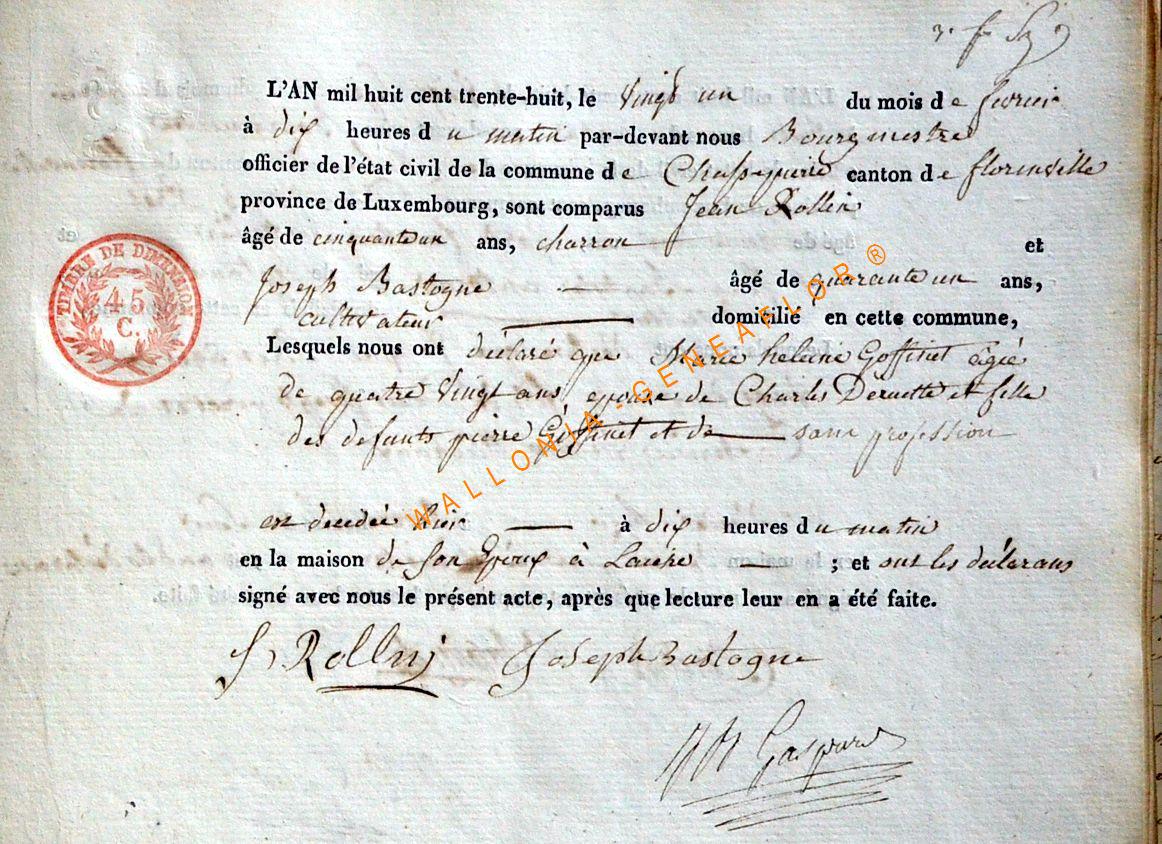 L'AN mil huit cent trente-huit, le vingt un du mois de fevrier
à dix heures du matin par-devant nous Bourgmestre
officier de l'état civil de la commune de Chassepierre canton de florenville
province de Luxembourg, sont comparus Jean Rollin
âgé de cinquante un ans, charron et
Joseph Bastogne âgé de quarante un ans,
cultivateur domicilié en cette commune,
Lesquels nous ont déclaré que Marie helene Goffinet âgée
de quatre vingt ans epouse de Charles et fille
des defunts pierre Goffinet et de sans profession
est decedée hier à dix heures du matin
en la maison de son Epoux à ; et ont les déclarans
signé avec nous le présent acte, après que lecture leur en a été faite.
J Rollin Joseph Bastogne
Gaspard
TIMBRE DE DIMENSION
45
C.
WALLONIA-GENEAFLOR®